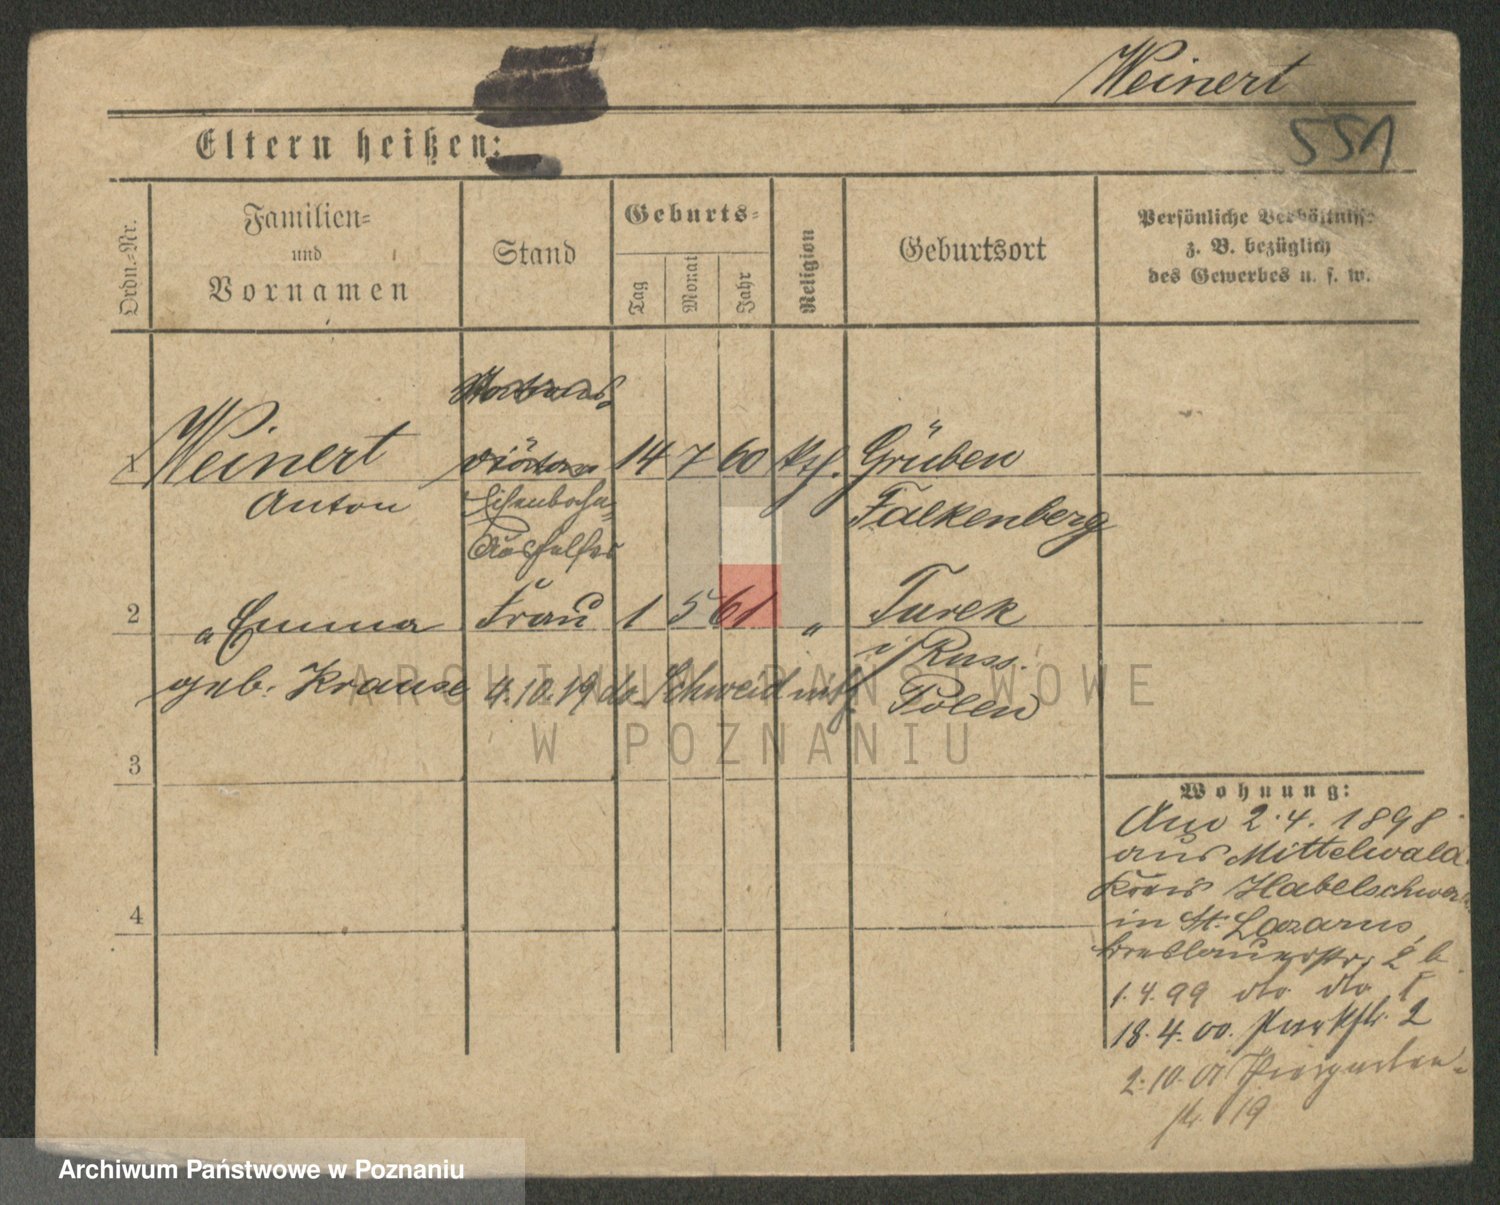 Weinert
551
Eltern heißen:
Ordn.-Nr.
Familien-
und
Vornamen
Stand
Geburts-
Tag
Monat
Jahr
Religion
Geburtsort
Persönliche Verhältnisse
z. B. bezüglich
des Gewerbes u. s. w.
1 Weinert 14 7 60 kth. Grüben
Anton Eisenbahn- Falkenberg
2 " Emma Frau 1 5 61 " Turek
i/Russ.
geb. Krause 4.10.19 do. Schweidnitz Polen
3
4
Wohnung:
Am 2.4.1898
aus Mittelwald
Kreis Habelschwer
in St. Lazarus,
Breslauerstr. 2 b
1.4.99 do do
18.4.00. Parkstr. 2
2.10.01 Thiergarten-
str. 19
ARCHIWUM PAŃSTWOWE
W POZNANIU
Archiwum Państwowe w Poznaniu